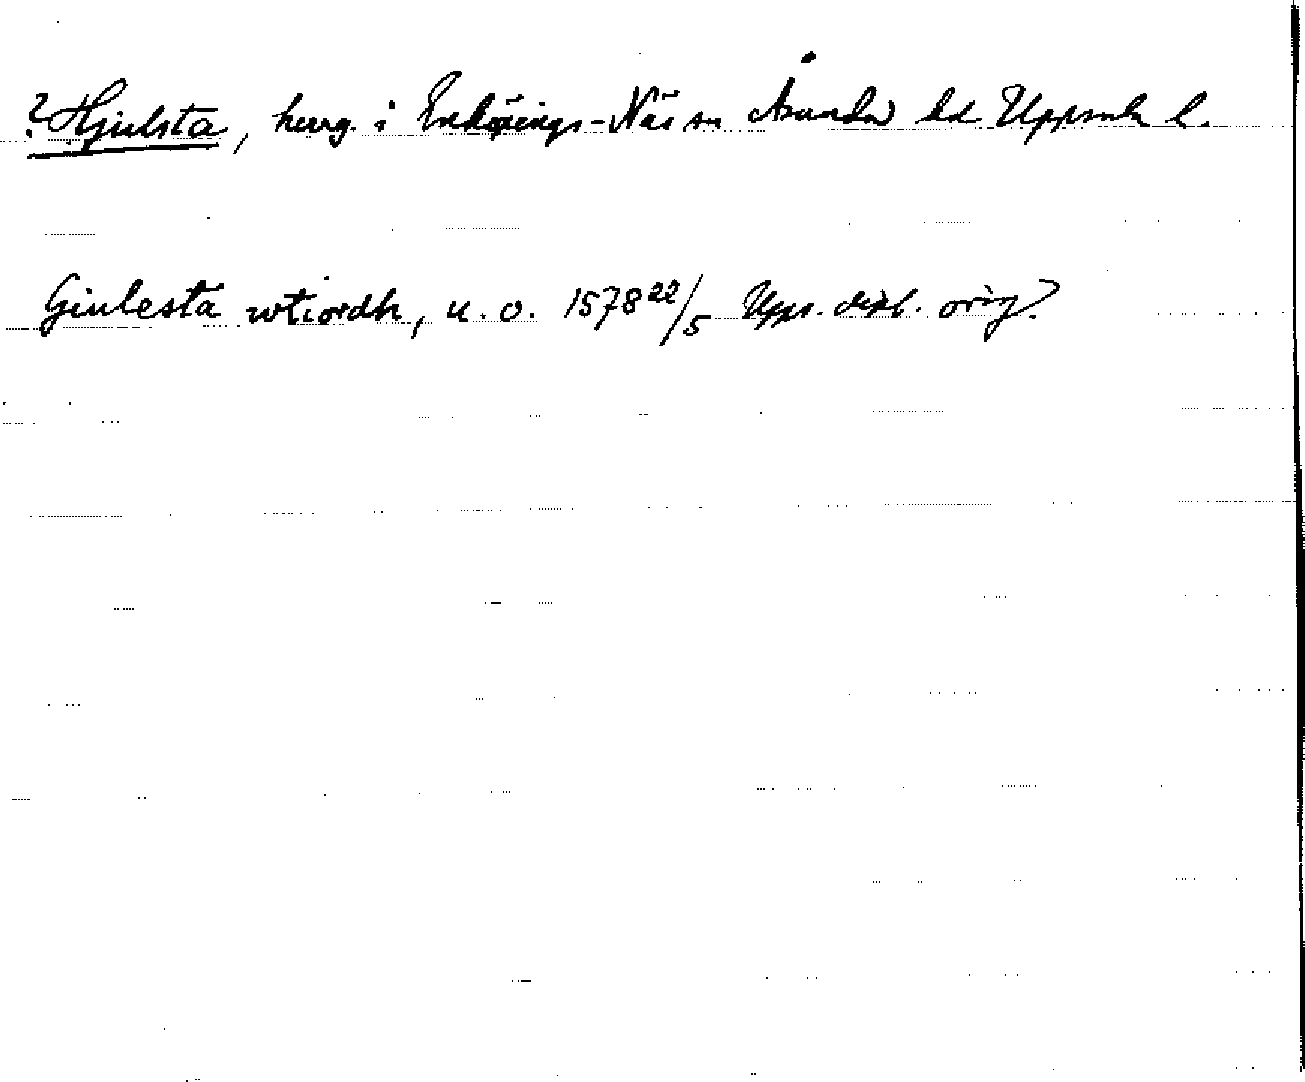 ? Hjulsta, herrg. i Enköpings-Näs sn Åsunda hd Uppsala l.
Giulesta wtiordh, u. o. 1578 22/5 Upps. dipl. orig.